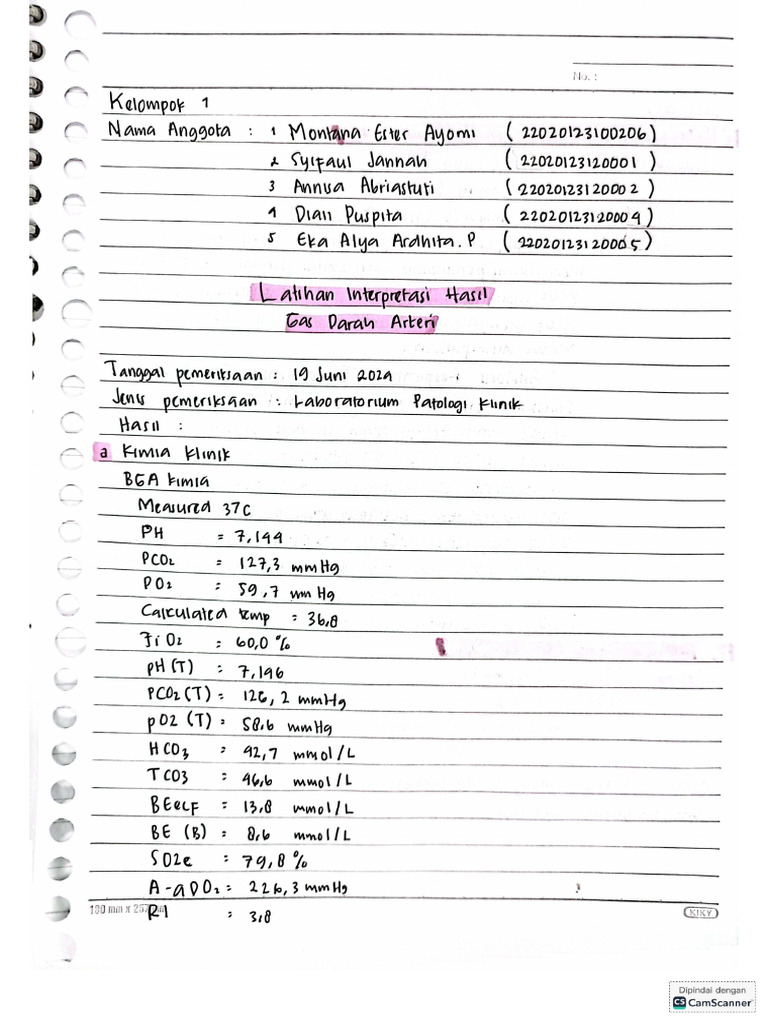 No. :
Kelompok 1
Nama Anggota : 1 Montana Ester Ayomi (22020123100206)
2 Syifaul Jannah (22020123120001)
3 Annisa Abriastuti (22020123120002)
4 Dian Puspita (22020123120004)
5 Eka Alya Ardhita.P (22020123120005)
Latihan Interpretasi Hasil
Gas Darah Arteri
Tanggal pemeriksaan : 19 Juni 2024
Jenis pemeriksaan : Laboratorium Patologi Klinik
Hasil :
a Kimia Klinik
BGA Kimia
Measured 37C
PH = 7,144
PCO2 : 127,3 mmHg
PO2 : 59,7 mmHg
Calculated temp : 36,8
FiO2 : 60,0 %
pH (T) : 7,146
PCO2 (T) : 126,2 mmHg
pO2 (T) : 58,6 mmHg
HCO3 : 42,7 mmol/L
TCO3 : 46,6 mmol/L
BEecf = 13,8 mmol/L
BE (B) : 8,6 mmol/L
SO2c : 79,8 %
A-aDO2 : 226,3 mmHg
RI : 3,8
KIKY
Dipindai dengan
CS CamScanner